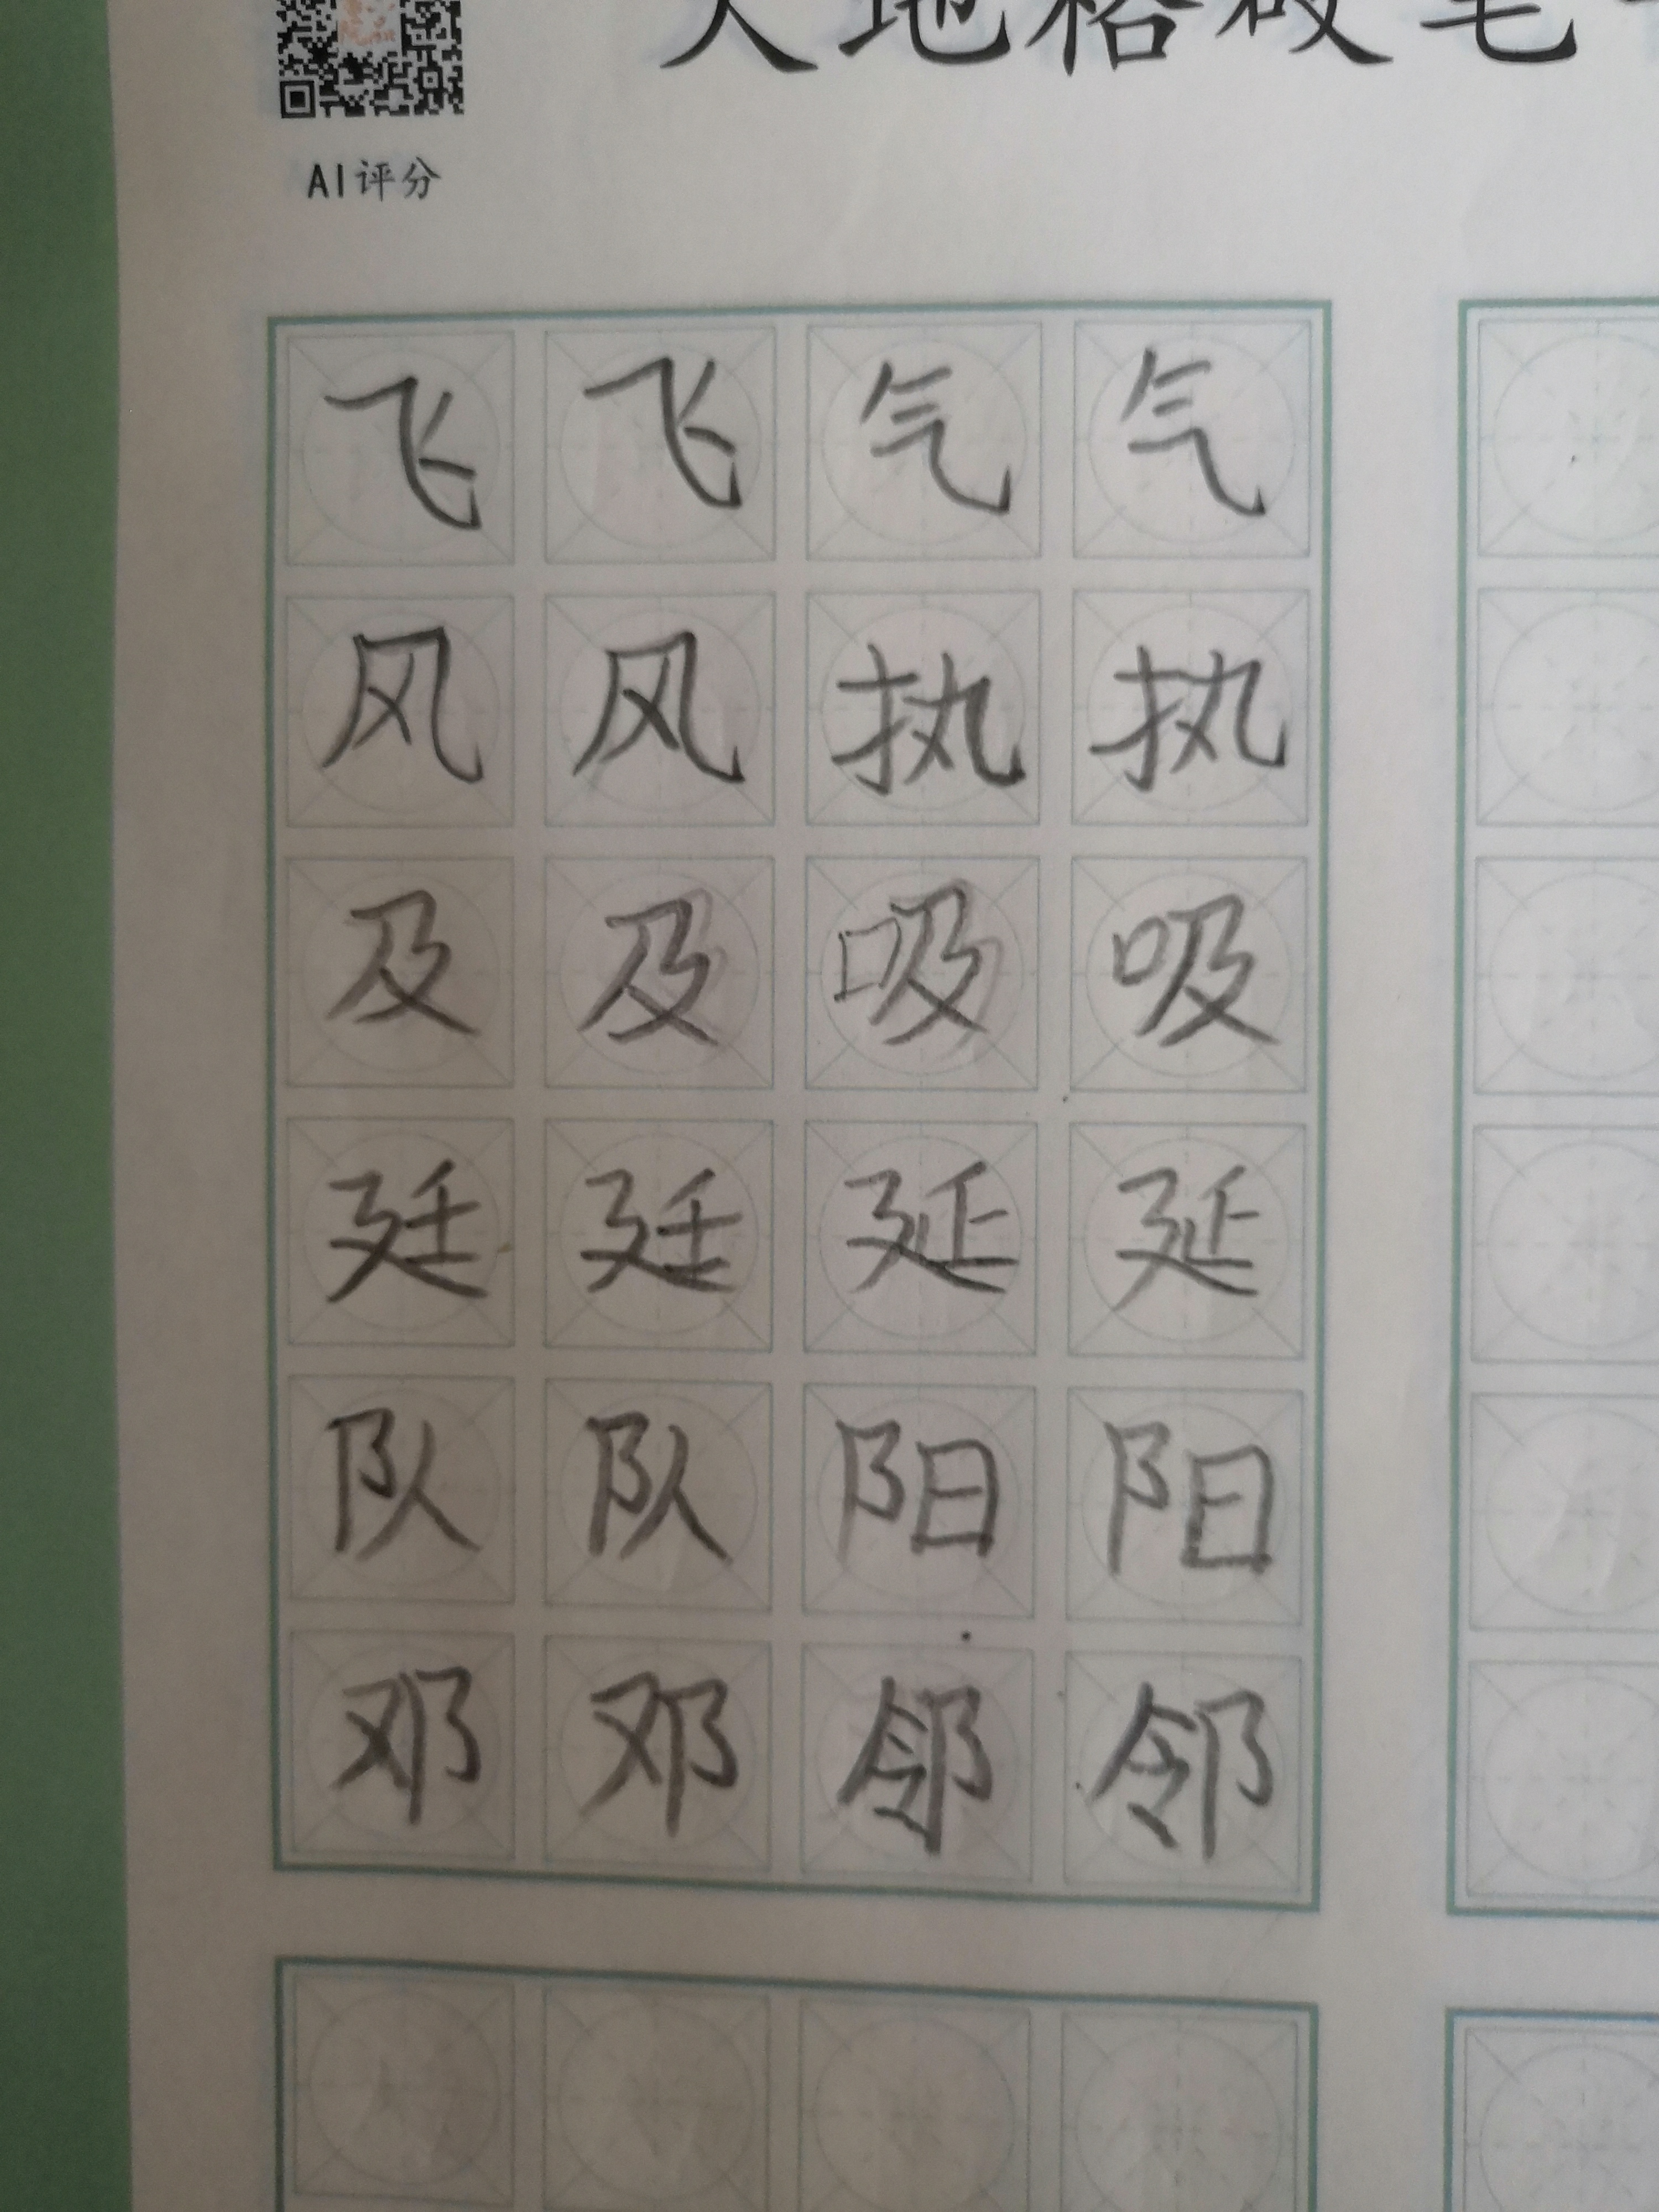 天地格硬笔
AI评分
飞飞气气
风风执执
及及吸吸
廷廷延延
队队阳阳
邓邓邻邻